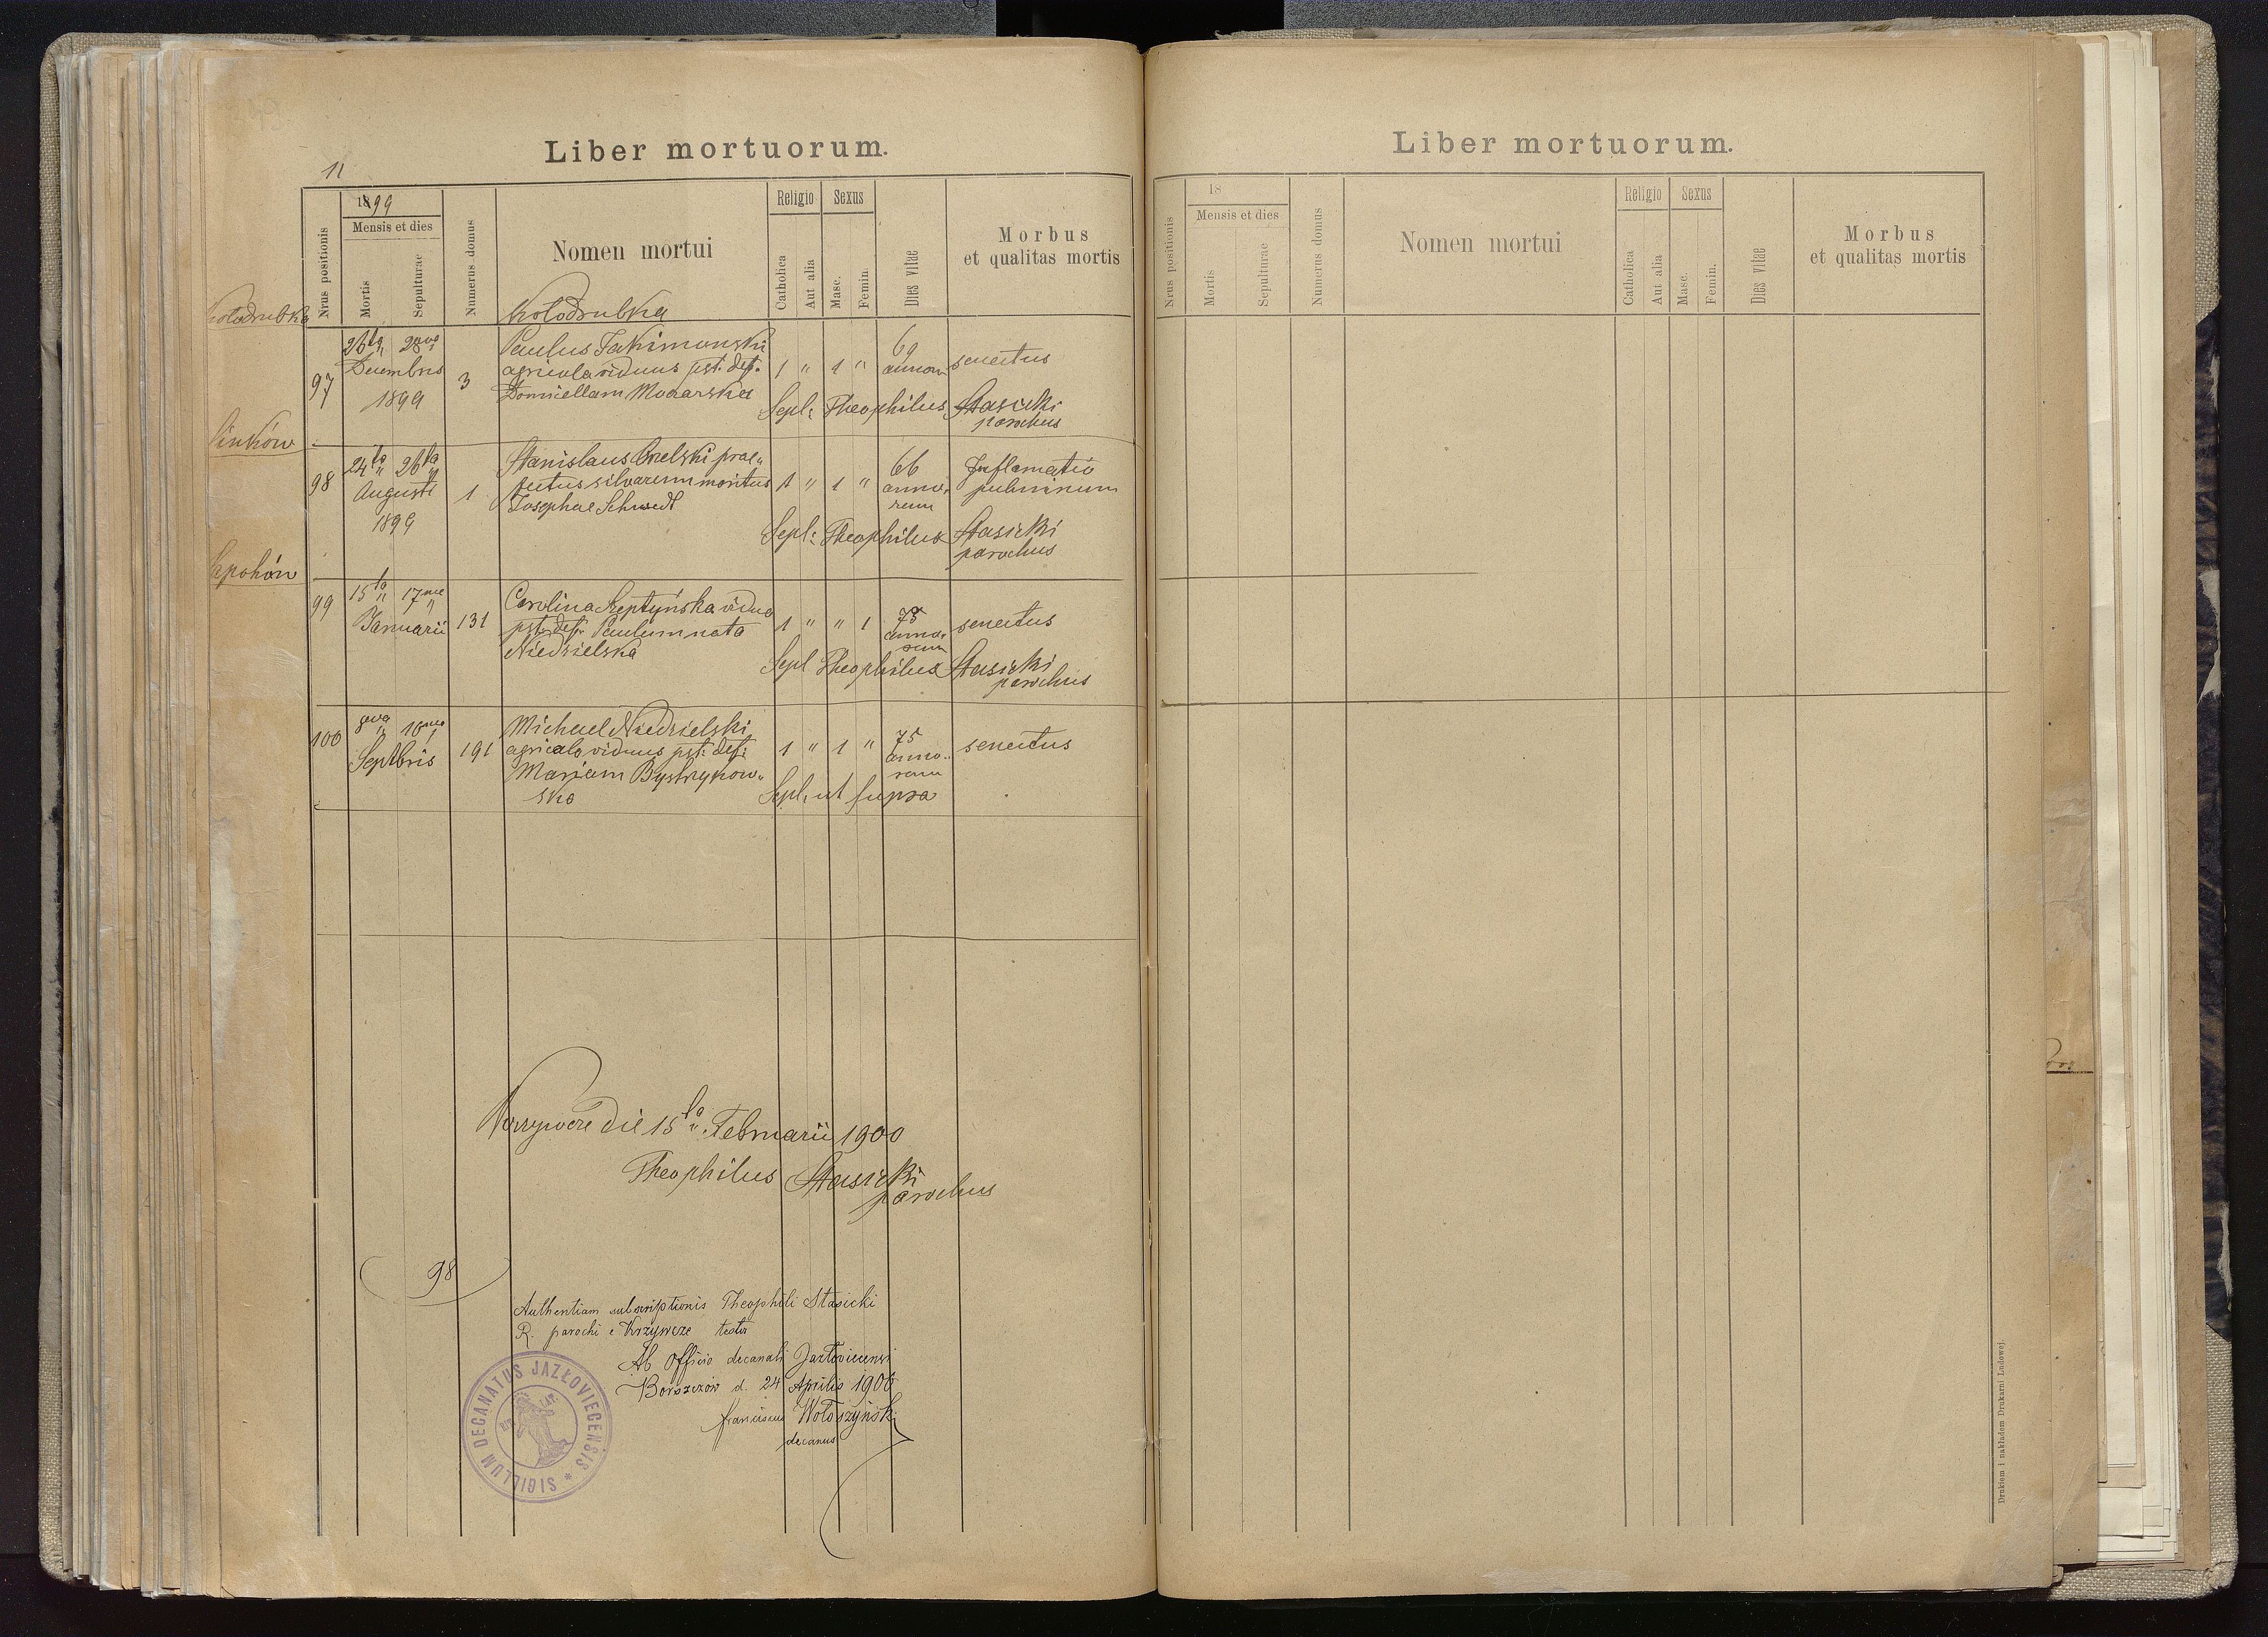 Liber mortuorum.
11
1899
Mensis et dies
Nrus positionis
Mortis
Sepulturae
Numerus domus
Nomen mortui
Religio
Catholica
Aut alia
Sexus
Masc.
Femin.
Dies vitae
Morbus
et qualitas mortis
Kołodrubka
Kołodrubka
97
26ta 28va
Decembris
1899
3
Paulus Jakimowski
agricola viduus pst. def.
1 " 1 "
69
annor.
senectus
Sepl: Theophilus Stasicki
parochus
98
24ta 26ta
Augusti
1899
1
Stanislaus Grelski prae„
fectus silvarum maritus
Josephae Schwedt
1 " 1 "
66
anno„
rum
Inflamatio
pulminum
Sepl: Theophilus Stasicki
parochus
99
15ta 17ma
Januarii
131
Carolina Szeptyńska vidua
pst. def. Paulum nata
Niedzielska
1 " " 1
75
anno„
rum
senectus
Sepl Theophilus Stasicki
parochus
100
8va 10ma
Septbris
191
Michael Niedzielski
agricola viduus pst. def:
Mariam Bystrzykow„
ska
1 " 1 "
75
anno„
rum
senectus
Sepl. ut supra
Krzywcze die 15ta Februarii 1900
Theophilus Stasicki
parochus
98
Authentiam subscriptionis Theophili Stasicki
R. parochi e Krzywcze testor
Ab Officio decanali Jazłoviecensi
Borszczów d. 24 Aprilis 1900
Franciscus Wołoszyński
decanus
SIGILLUM DECANATUS JAZŁOVIECENSIS *
Liber mortuorum.
18
Mensis et dies
Nrus positionis
Mortis
Sepulturae
Numerus domus
Nomen mortui
Religio
Catholica
Aut alia
Sexus
Masc.
Femin.
Dies vitae
Morbus
et qualitas mortis
Drukiem i nakładem Drukarni Ludowej.